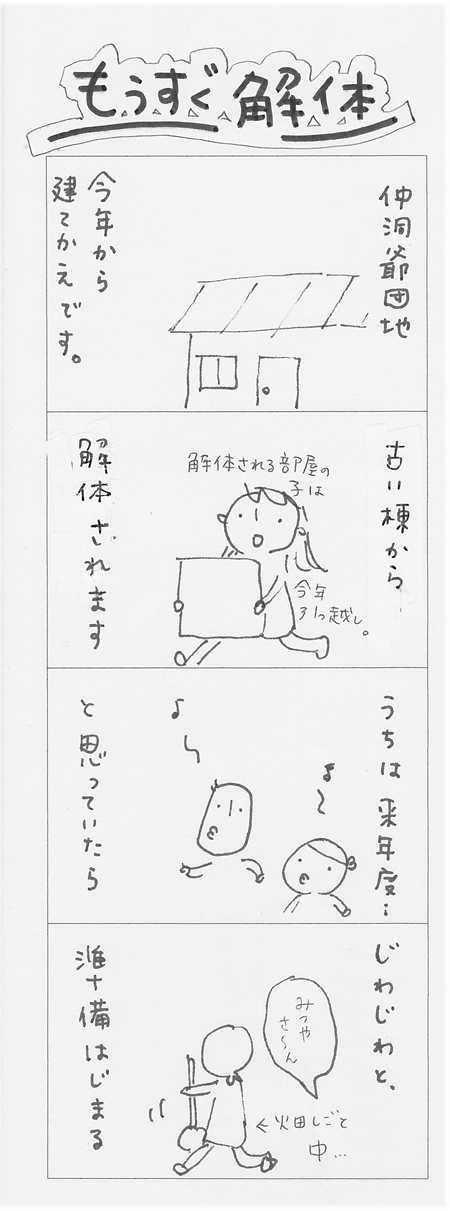 もうすぐ解体
仲洞爺団地
今年から
建てかえです。
古い棟から
解体されます
解体される部屋の
子は
今年
引っ越し。
うちは来年度…
と思っていたら
じわじわと、
準備はじまる
みつや
さ〜ん
←畑しごと
中…